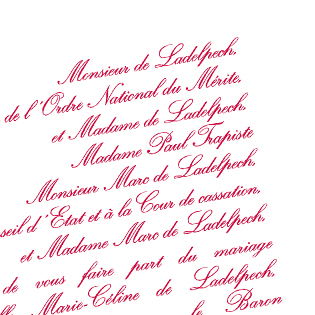 Monsieur de Ladelpech,
de l'Ordre National du Mérite,
et Madame de Ladelpech,
Madame Paul Trapiste
Monsieur Marc de Ladelpech,
seil d'Etat et à la Cour de cassation,
et Madame Marc de Ladelpech,
de vous faire part du mariage
Marie-Céline de Ladelpech,
le Baron